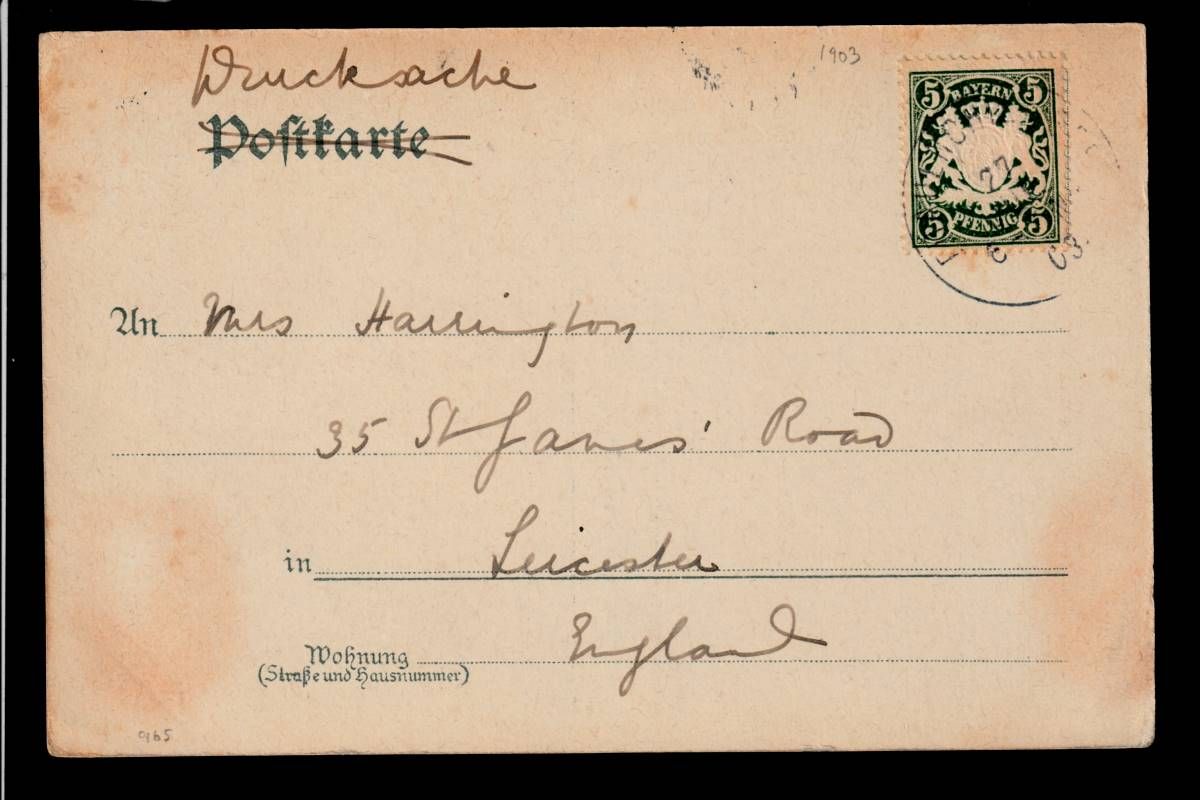 Drucksache
1903
Postkarte
5 BAYERN 5
5 PFENNIG 5
27
03.
An Mrs Harrington
35 St James' Road
in Leicester
England
Wohnung
(Straße und Hausnummer)
965